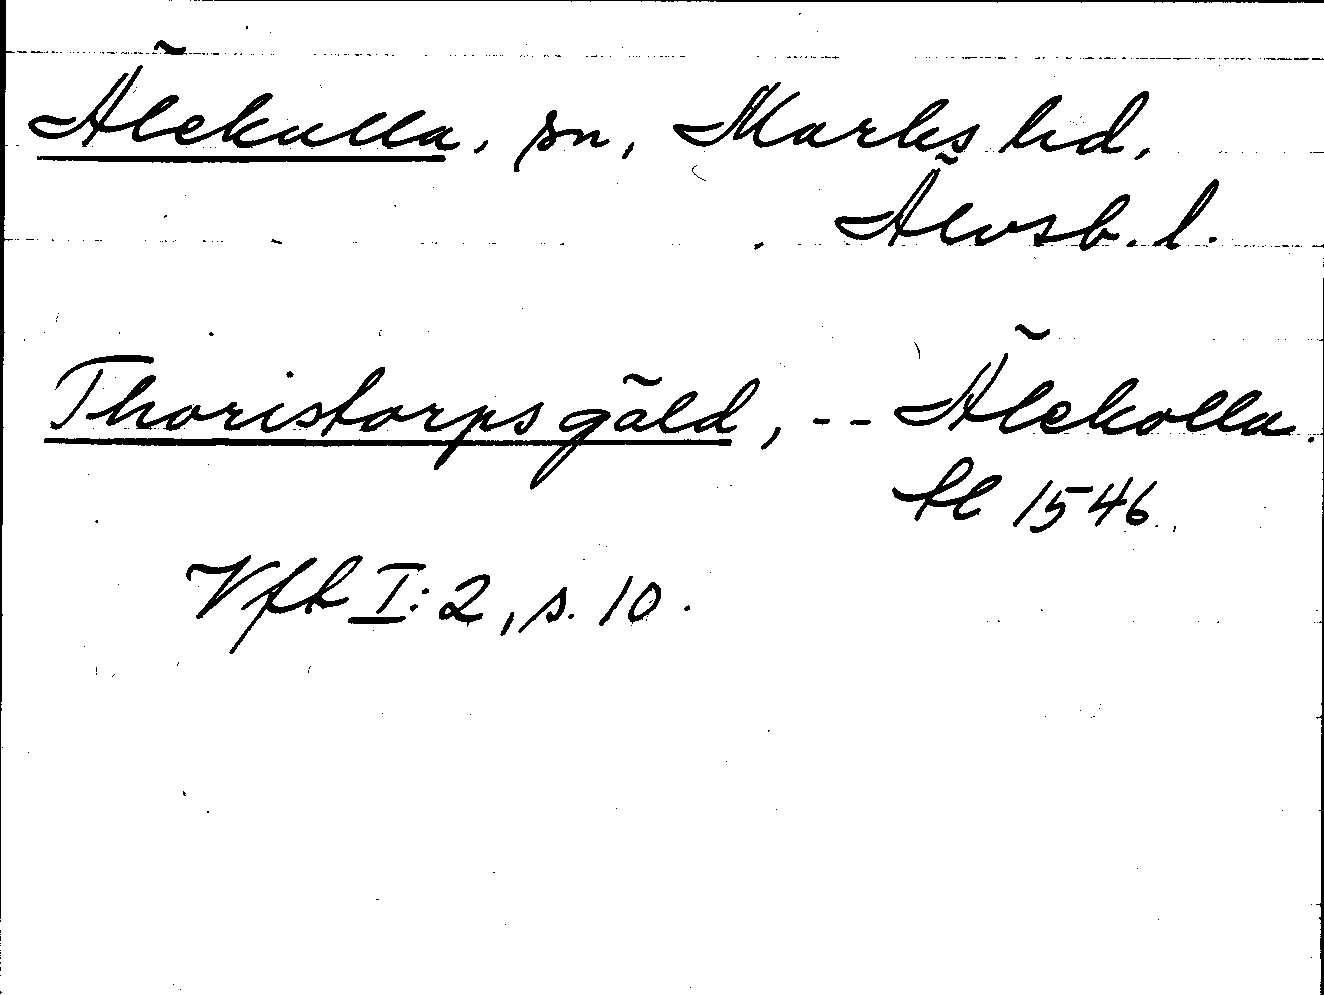 Älekulla, sn, Marks hd,
Älvsb. l.
Thoristorps gäld, -- Älekolla.
Äl 1546
Vfh I:2, s. 10.